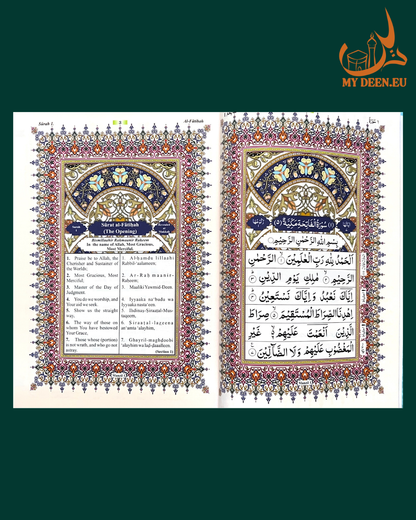 MY DEEN.EU
Sûrah 1.
3
Al-Fâtihah
Sûrat al-Fâtihah
(The Opening)
Bismillaahir Rahmaanir Raheem
In the name of Allah, Most Gracious,
Most Merciful.
1. Praise be to Allah, the
Cherisher and Sustainer of
the Worlds;
2. Most Gracious, Most
Merciful;
3. Master of the Day of
Judgment.
4. You do we worship, and
Your aid we seek.
5. Show us the straight
way,
6. The way of those on
whom You have bestowed
Your Grace,
7. Those whose (portion)
is not wrath, and who go not
astray.
1. Al-hamdu lillaahi
Rabbil-'aalameen,
2. Ar-Rahmaanir-
Raheem.
3. Maaliki Yawmid-Deen.
4. Iyyaaka na'budu wa
lyyaaka nasta'een.
5. Ihdinaṣ-Ṣiraaṭal-Mus-
taqeem,
6. Siraaṭal-lazeena
an'amta 'alayhim,
7. Ghayril-maghdoobi
'alayhim wa lad-daaalleen.
سُورَةُ الْفَاتِحَةِ مَكِّيَّةٌ
بِسْمِ اللّٰهِ الرَّحْمٰنِ الرَّحِيْمِ
اَلْحَمْدُ لِلّٰهِ رَبِّ الْعٰلَمِيْنَ الرَّحْمٰنِ
الرَّحِيْمِ مٰلِكِ يَوْمِ الدِّيْنِ
اِيَّاكَ نَعْبُدُ وَاِيَّاكَ نَسْتَعِيْنُ
اِهْدِنَا الصِّرَاطَ الْمُسْتَقِيْمَ صِرَاطَ
الَّذِيْنَ اَنْعَمْتَ عَلَيْهِمْ غَيْرِ
الْمَغْضُوْبِ عَلَيْهِمْ وَلَا الضَّآلِّيْنَ